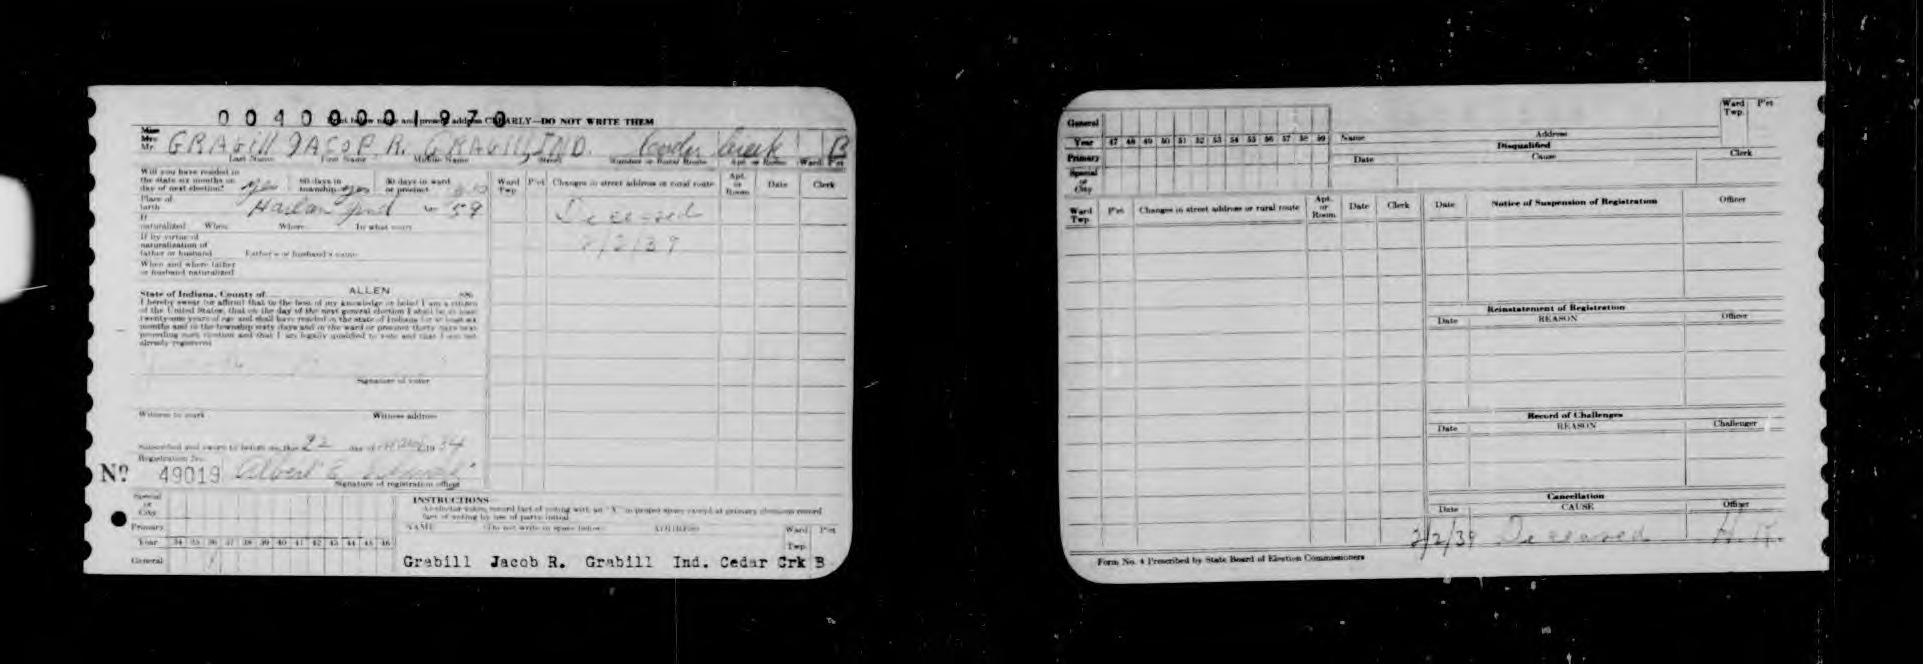 00400001970
and present address CLEARLY—DO NOT WRITE THEM
Miss
Mrs.
Mr. GRABill JACOB R. GRABill, IND. Cedar Creek B
Last Name First Name Middle Name Street Number or Rural Route Apt. or Room Ward P'ct
Will you have resided in
the state six months on
day of next election? yes 60 days in
township yes 30 days in ward
or precinct
Place of
birth Harlan Ind 59
If
naturalized When Where In what court
If by virtue of
naturalization of
father or husband Father's or husband's name
When and where father
or husband naturalized
Ward
Twp. P'ct Changes in street address or rural route Apt.
or
Room Date Clerk
Deceased
2/2/39
State of Indiana, County of ALLEN
I hereby swear (or affirm) that to the best of my knowledge or belief I am a citizen
of the United States, that on the day of the next general election I shall be at least
twenty-one years of age and shall have resided in the state of Indiana for at least six
months and in the township sixty days and in the ward or precinct thirty days next
preceding such election and that I am legally qualified to vote and that I am not
already registered
Signature of voter
Witness to mark Witness address
Subscribed and sworn to before me this 22 day of 34
Registration No.
Nº 49019 Albert E.
Signature of registration officer
Special
or
City
Primary
Year 34 35 36 37 38 39 40 41 42 43 44 45 46
General
INSTRUCTIONS
As elector votes, record fact of voting with an "X" in proper space except at primary elections record
fact of voting by use of party initial
NAME (Do not write in space below) ADDRESS Ward
Twp. P'ct
Grabill Jacob R. Grabill Ind. Cedar Crk B
General
Year 47 48 49 50 51 52 53 54 55 56 57 58 59
Primary
Special
or
City
Name Address Ward
Twp. P'ct
Disqualified
Date Cause Clerk
Ward
Twp. P'ct Changes in street address or rural route Apt.
or
Room Date Clerk
Date Notice of Suspension of Registration Officer
Reinstatement of Registration
Date REASON Officer
Record of Challenges
Date REASON Challenger
Cancellation
Date CAUSE Officer
2/2/39 Deceased H. K.
Form No. 4 Prescribed by State Board of Election Commissioners